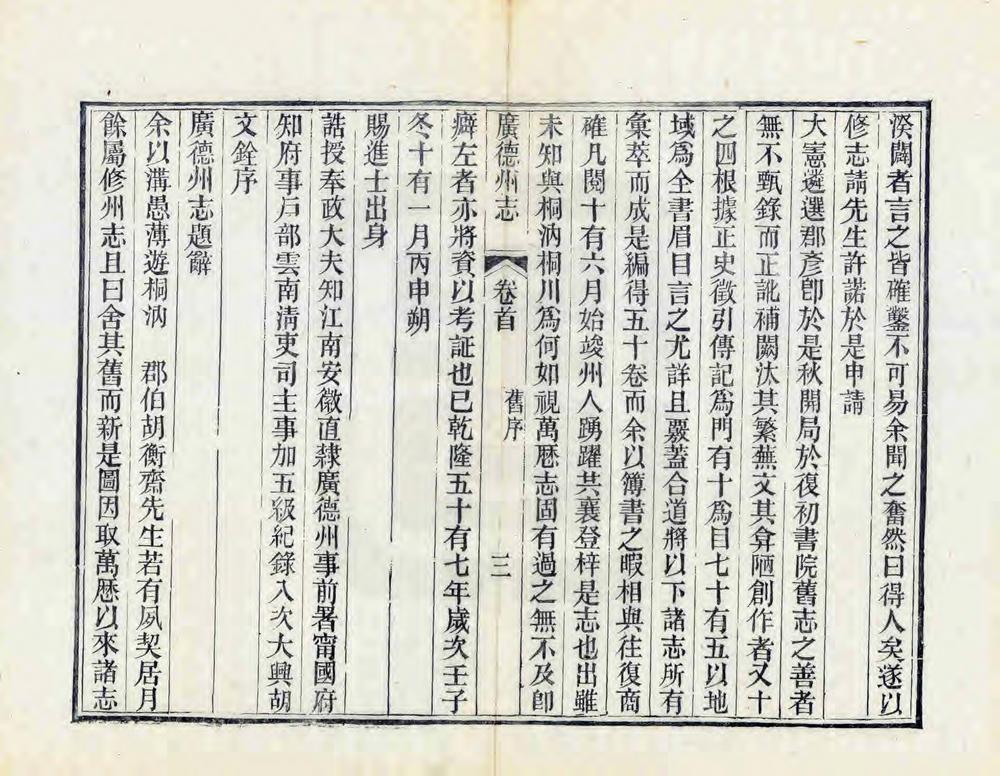 湀闢者言之皆確鑿不可易余聞之奮然曰得人矣遂以
修志請先生許諾於是申請
大憲遴選郡彥卽於是秋開局於復初書院舊志之善者
無不甄錄而正訛補闕汰其繁蕪文其弇陋創作者又十
之四根據正史徵引傳記爲門有十爲目七十有五以地
域爲全書眉目言之尤詳且覈蓋合道將以下諸志所有
彙萃而成是編得五十卷而余以簿書之暇相與往復商
確凡閱十有六月始竣州人踴躍共襄登梓是志也出雖
未知與桐汭桐川爲何如視萬厯志固有過之無不及卽
廣德州志 卷首 舊序 三
癖左者亦將資以考証也已乾隆五十有七年歲次壬子
冬十有一月丙申朔
賜進士出身
誥授奉政大夫知江南安徽直隸廣德州事前署甯國府
知府事戶部雲南清吏司主事加五級紀錄入次大興胡
文銓序
廣德州志題辭
余以溝愚薄遊桐汭 郡伯胡衡齋先生若有夙契居月
餘屬修州志且曰舍其舊而新是圖因取萬厯以來諸志